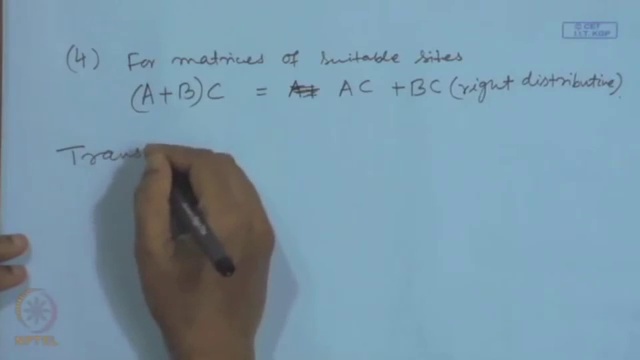 © CET
I.I.T. KGP
(4) For matrices of suitable sites
(A+B)C = AC + BC (right distributive).
Trans
NPTEL